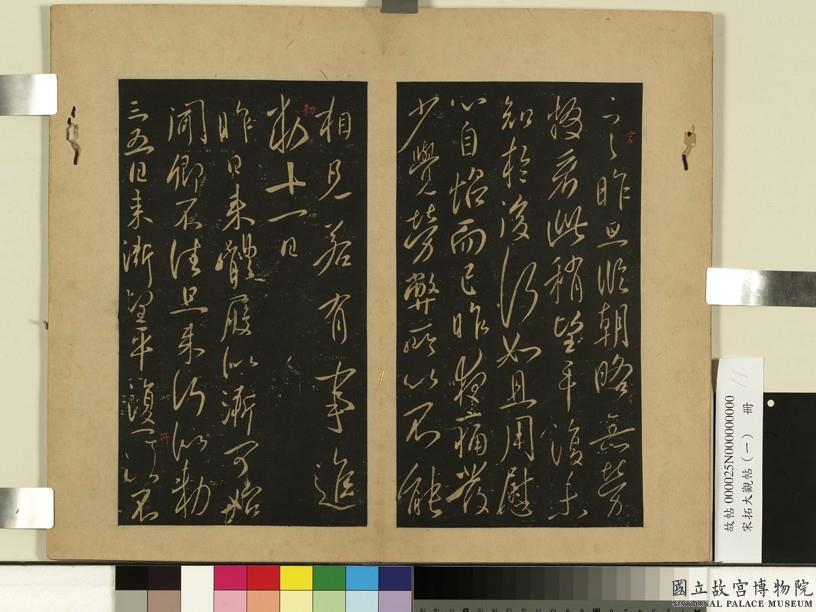 昨旦臨朝略無勞
發若此稍望平復未
知於後何如且用慰
心自怡而已昨夜痛發
少覺勞弊所以不能
相見若有事進
勅十一日
昨日來體履似漸可
聞卿不佳旦來何似勅
三五日來漸望平
故帖 000025N000000000
宋拓大觀帖(一) 冊
11
國立故宮博物院
NATIONAL PALACE MUSEUM